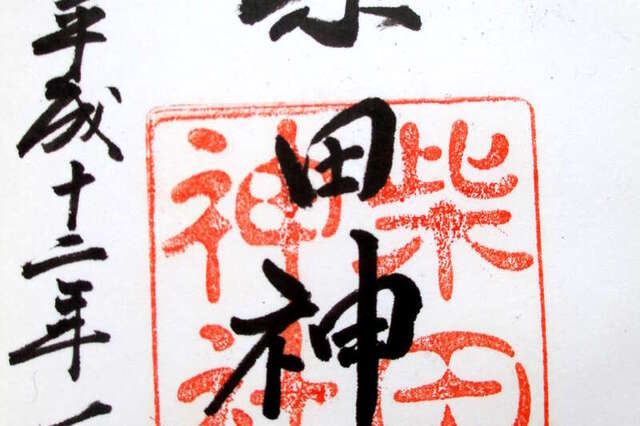 柴田神
柴田
神社
平成十二年一